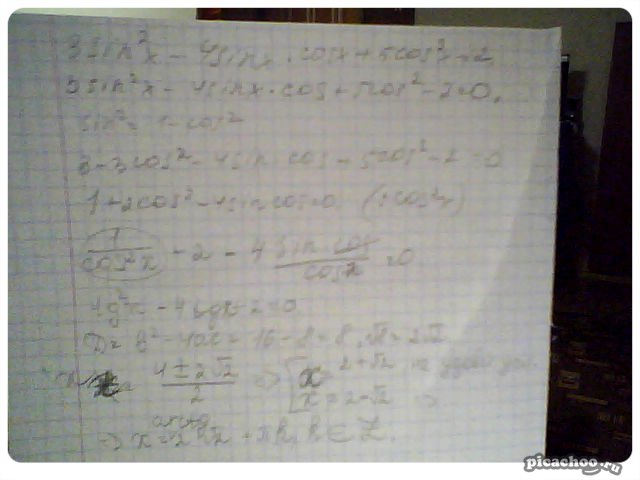 3sin²x - 4sinx · cosx + 5cos²x = 2
3sin²x - 4sinx · cos + 5cos² - 2 = 0.
sin² = 1 - cos²
3 - 3cos² - 4sin cos + 5cos² - 2 = 0
1 + 2cos² - 4sin cos = 0 (: cos²x)
1/cos²x + 2 - 4 sin cos/cos²x = 0
tg²x - 4tgx + 2 = 0
D = b² - 4ac = 16 - 8 = 8, √D = 2√2
4 ± 2√2 / 2 => [ x = 2 + √2 не
x = 2 - √2 =>
=> x = arctg 2 √2 + πk, k ∈ Z.
picachoo.ru